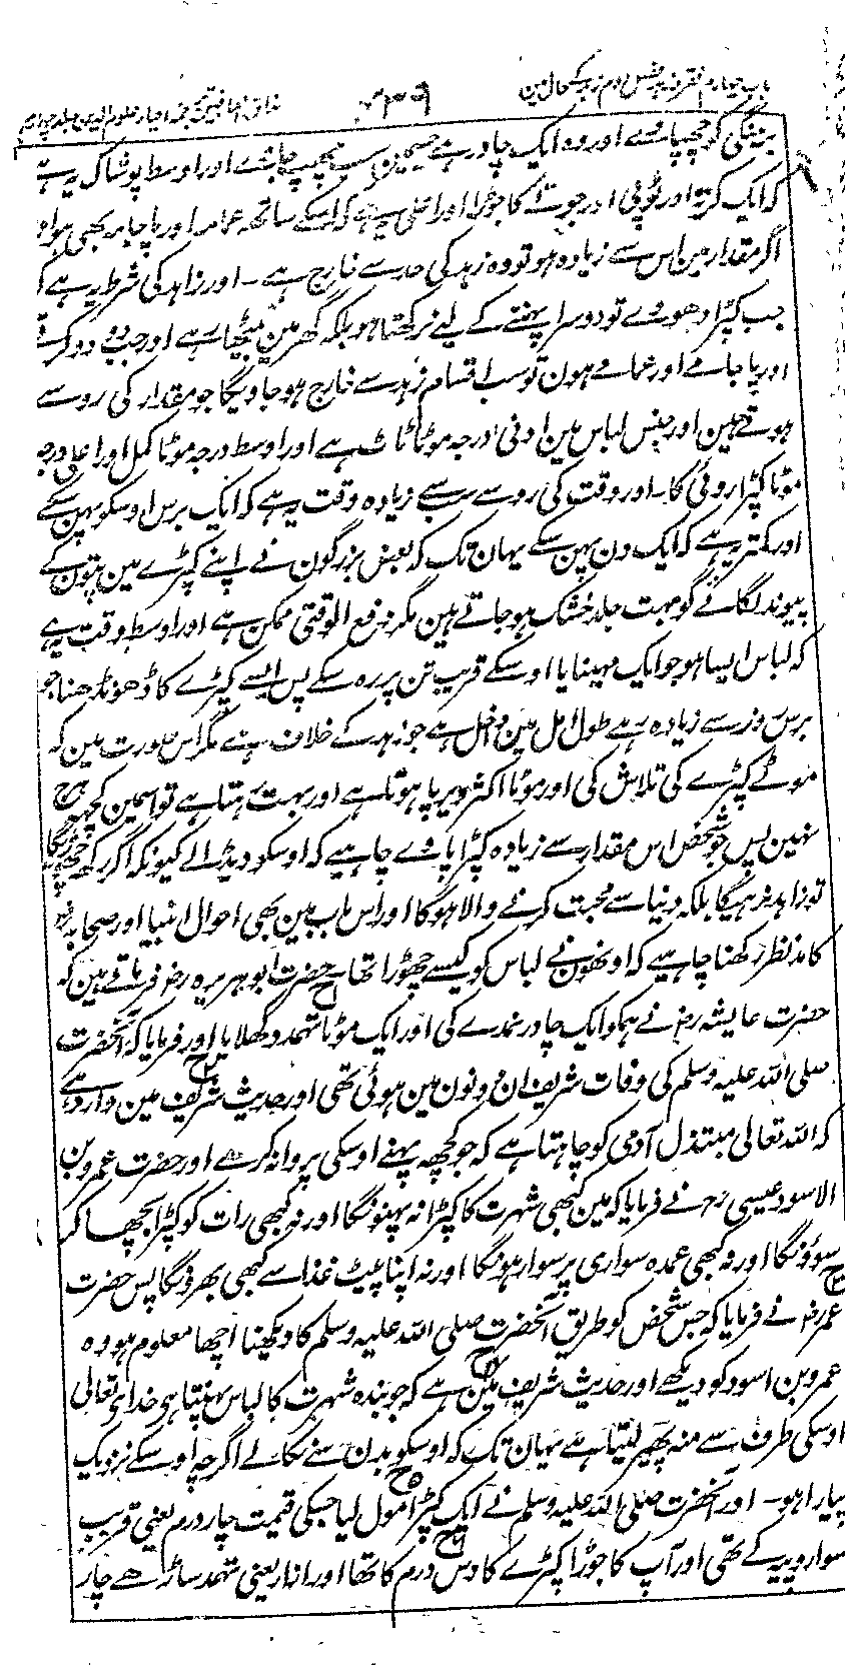 باب چہارم فقر و زہد فصل دوم زہد کے حال مین ۴۳۹ مذاق العارفین ترجمہ احیاء علوم الدین جلد چہارم
برہنگی کو چھپاوے اور وہ ایک چادر ہے جسمین سب چھپ جاوے اور اوسط پوشاک یہ ہے
کہ ایک کرتہ اور ٹوپی اور جوتے کا جوڑا اور اعلیٰ یہ ہے کہ اسکے ساتھ عمامہ اور پاجامہ بھی ہو اور
اگر مقدار مین اس سے زیادہ ہو تو وہ زہد کی حد سے خارج ہے۔ اور زاہد کی شرط یہ ہے کہ
جب کپڑا دھووے تو دوسرا پہننے کے لیے نرکھتا ہو بلکہ گھر مین بیٹھا رہے اور جب دو دو کرتے
اور پاجامے اور عمامے ہون تو سب اقسام زہد سے خارج ہو جاویگا جو مقدار کی روسے
ہوتے ہین اور جنس لباس مین ادنیٰ درجہ موٹا ٹاٹ ہے اور اوسط درجہ موٹا کمل اور اعلیٰ درجہ
موٹا کپڑا روئی کا۔ اور وقت کی روسے سب سے زیادہ وقت یہ ہے کہ ایک برس اوسکو پہن سکے
اور کمتر یہ ہے کہ ایک دن پہن سکے یہان تک کہ بعض بزرگون نے اپنے کپڑے مین پتون کے
پیوند لگائے گو بہت جلد خشک ہو جاتے ہین مگر دفع الوقتی ممکن ہے اور اوسط وقت یہ ہے
کہ لباس ایسا ہو جو ایک مہینا یا اوسکے قریب تن پر رہ سکے پس ایسے کپڑے کا ڈھونڈھنا جو
برس روز سے زیادہ رہے طول امل مین داخل ہے جو زہد کے خلاف ہے مگر اس صورت مین کہ
موٹے کپڑے کی تلاش کی اور موٹا اکثر دیرپا ہوتا ہے اور بہت رہتا ہے تو اسمین کچھ ہرج
نہین پس جو شخص اس مقدار سے زیادہ کپڑا پاوے چاہیے کہ اوسکو دیڈالے کیونکہ اگر رکھ چھوڑیگا
تو زاہد نرہیگا بلکہ دنیا سے محبت کرنے والا ہوگا اور اس باب مین بھی احوال انبیا اور صحابہ رضہ
کا مدنظر رکھنا چاہیے کہ اونھون نے لباس کو کیسے چھوڑا تھا۔ حضرت ابو ہریرہ رضہ فرماتے ہین کہ
حضرت عایشہ رضہ نے ہمکو ایک چادر نمدے کی اور ایک موٹا تہمد دکھلایا اور فرمایا کہ آنحضرت
صلی اللہ علیہ وسلم کی وفات شریف ان دونون مین ہوئی تھی اور حدیث شریف مین وارد ہے
کہ اللہ تعالی مبتذل آدمی کو چاہتا ہے کہ جو کچھ پہنے اوسکی پروا نہ کرے اور حضرت عمرو بن
الاسود عیسی رحہ نے فرمایا کہ مین کبھی شہرت کا کپڑا نہ پہنونگا اور نہ کبھی رات کو کپڑا بچھا کر
سوؤنگا اور نہ کبھی عمدہ سواری پر سوار ہونگا اور نہ اپنا پیٹ غذا سے کبھی بھرونگا پس حضرت
عمر رضہ نے فرمایا کہ جس شخص کو طریق آنحضرت صلی اللہ علیہ وسلم کا دیکھنا اچھا معلوم ہو وہ
عمرو بن اسود کو دیکھے اور حدیث شریف مین ہے کہ جو بندہ شہرت کا لباس پہنتا ہے خدا تعالی
اوسکی طرف سے منہ پھیر لیتا ہے یہان تک کہ اوسکو بدن سے نکالے اگرچہ اوسکے نزدیک
پیارا ہو۔ اور آنحضرت صلی اللہ علیہ وسلم نے ایک کپڑا مول لیا جسکی قیمت چار درم یعنی قریب
سوا روپیہ کے تھی اور آپ کا جوڑا کپڑے کا دس درم کا تھا اور ازار یعنی تہمد ساڑھے چار